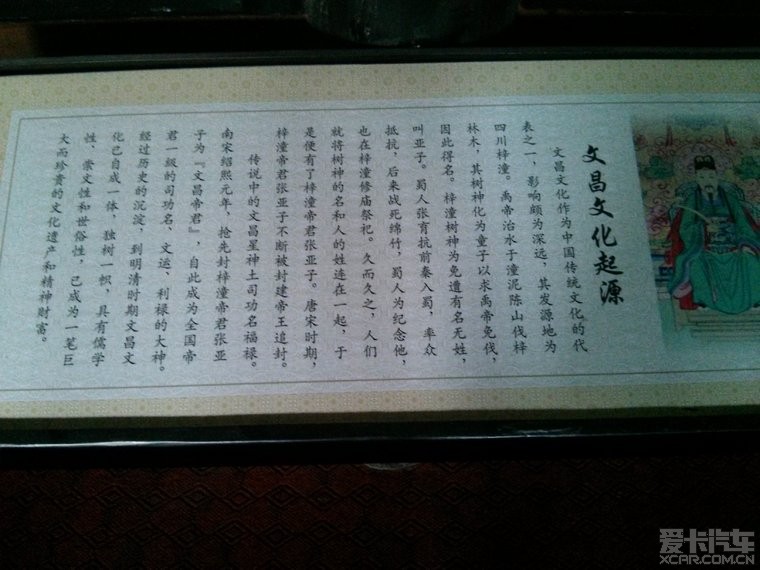 文昌文化起源
文昌文化作为中国传统文化的代
表之一，影响颇为深远，其发源地为
四川梓潼。禹帝治水于潼泥陈山伐梓
林木，其树神化为童子以求禹帝免伐，
因此得名。梓潼树神为免遭有名无姓，
叫亚子。蜀人张育抗前秦入蜀，率众
抵抗，后来战死绵竹，蜀人为纪念他，
也在梓潼修庙祭祀。久而久之，人们
就将树神的名和人的姓连在一起，于
是便有了梓潼帝君张亚子。唐宋时期，
梓潼帝君张亚子不断被封建帝王追封。
传说中的文昌星神主司功名福禄。
南宋绍熙元年，抢先封梓潼帝君张亚
子为『文昌帝君』，自此成为全国帝
君一级的司功名、文运、利禄的大神。
经过历史的沉淀，到明清时期文昌文
化已自成一体，独树一帜，具有儒学
性，崇文性和世俗性，已成为一笔巨
大而珍贵的文化遗产和精神财富。
爱卡汽车
XCAR.COM.CN